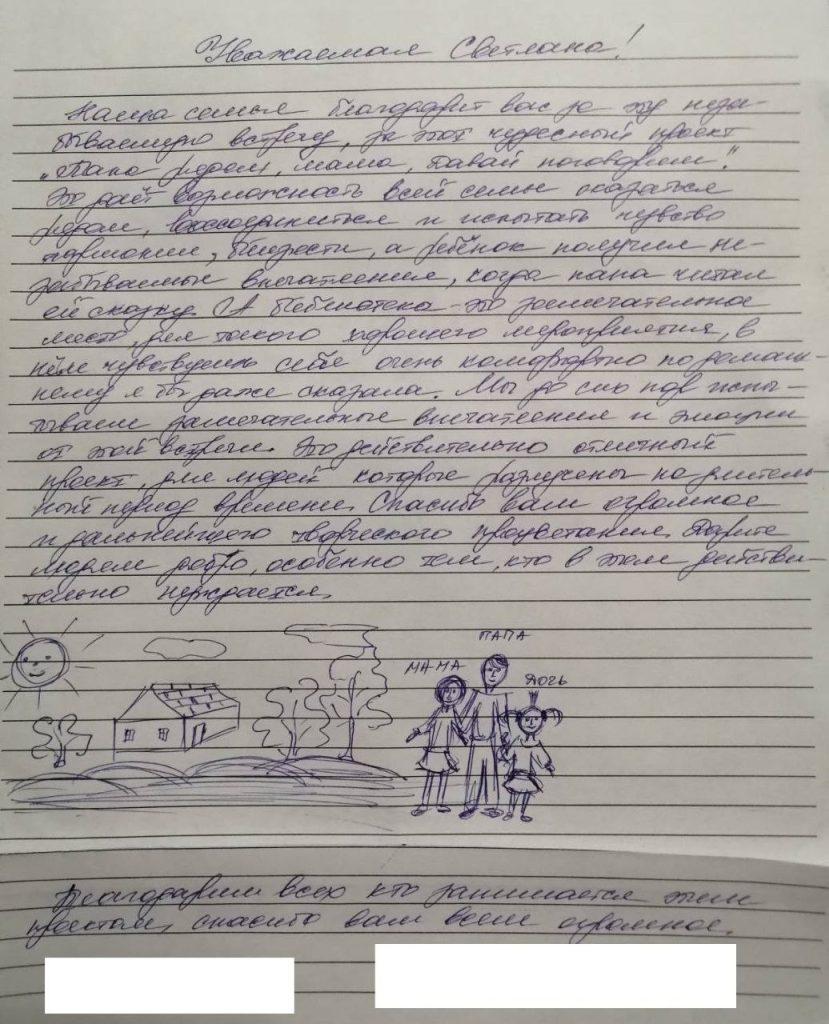 Уважаемая Светлана!
Наша семья благодарит вас за эту неза-
бываемую встречу, за этот чудесный проект
„Папа рядом, мама, давай поговорим".
Это даёт возможность всей семьи оказаться
рядом, воссоединиться и испытать чувство
гармонии, близости, а ребёнок получил не-
забываемые впечатления, когда папа читал
ей сказку. А библиотека - это замечательное
место, для такого хорошего мероприятия, в
нём чувствуешь себя очень комфортно по домаш-
нему я бы даже сказала. Мы до сих пор испы-
тываем замечательные впечатления и эмоции
от этой встречи. Это действительно отличный
проект, для людей которые разлучены на длитель-
ный период времени. Спасибо вам огромное
и дальнейшего творческого процветания. Дарите
людям добро, особенно тем, кто в этом действи-
тельно нуждается.
ПАПА
МАМА
ДОЧЬ
Благодарим всех кто занимается этим
проектом, спасибо вам всем огромное.